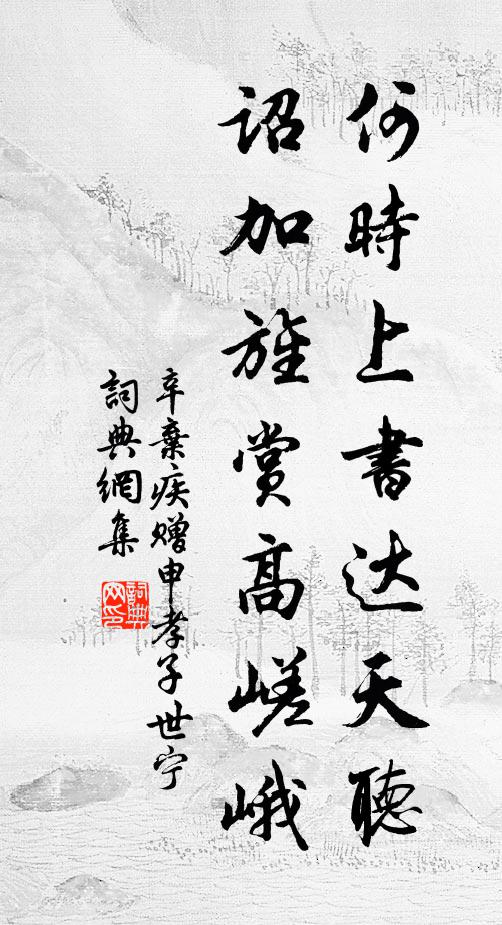 何時上書达天聽
詔加旌赏高嵯峨
辛棄疾赠申孝子世宁
詞典網集
詞典网印